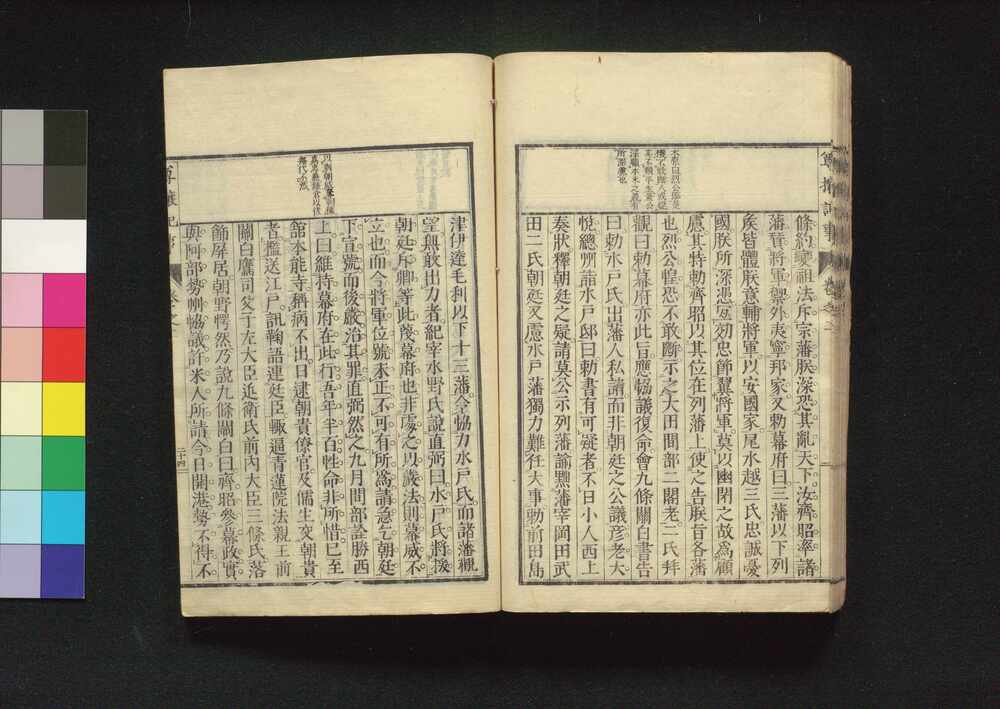 條約變祖法斥宗藩朕深恐其亂天下汝齊昭率諸
藩贊將軍禦外夷寧邦家又勅幕府曰三藩以下列
矦皆體朕意輔將軍以安國家尾水越三氏忠誠憂
國朕所深憑宜効忠節翼將軍莫以幽閉之故爲顧
慮其特勅齊昭以其位在列藩上使之告朕旨各藩
也烈公惶恐不敢斷示之大田間部二閣老二氏拜
觀曰勅幕府亦此旨應恊議復命會九條關白書告
曰勅水戸氏出藩人私請而非朝廷之公議彥老大
悅總州詣水戸邸曰勅書有可疑者不日小人西上
奏狀釋朝廷之疑請莫公示列藩諭黜藩宰岡田武
田二氏朝廷又慮水戸藩獨力難任大事勅前田島
津伊達毛利以下十三藩令恊力水戸氏而諸藩觀
望無敢出力者紀宰水野氏說直弼曰水戸氏將挾
朝廷斥卿等此蔑幕府也非處之以嚴法則幕威不
立也而今將軍位號未正不可有所爲請急乞朝廷
下宣號而後嚴治其罪直弼然之九月間部詮勝西
上曰維持幕府在此行吾年半百性命非所惜已至
舘本能寺稱病不出日逮朝貴僚官及儒生交朝貴
者檻送江戸訊鞫語連廷臣輙逼青蓮院法親王前
關白鷹司父子左大臣近衛氏前內大臣三條氏落
飾屏居朝野愕然乃說九條關白曰齊昭參幕政實
與阿部勢州恊議許米人所請今日開港勢不得不
二十四